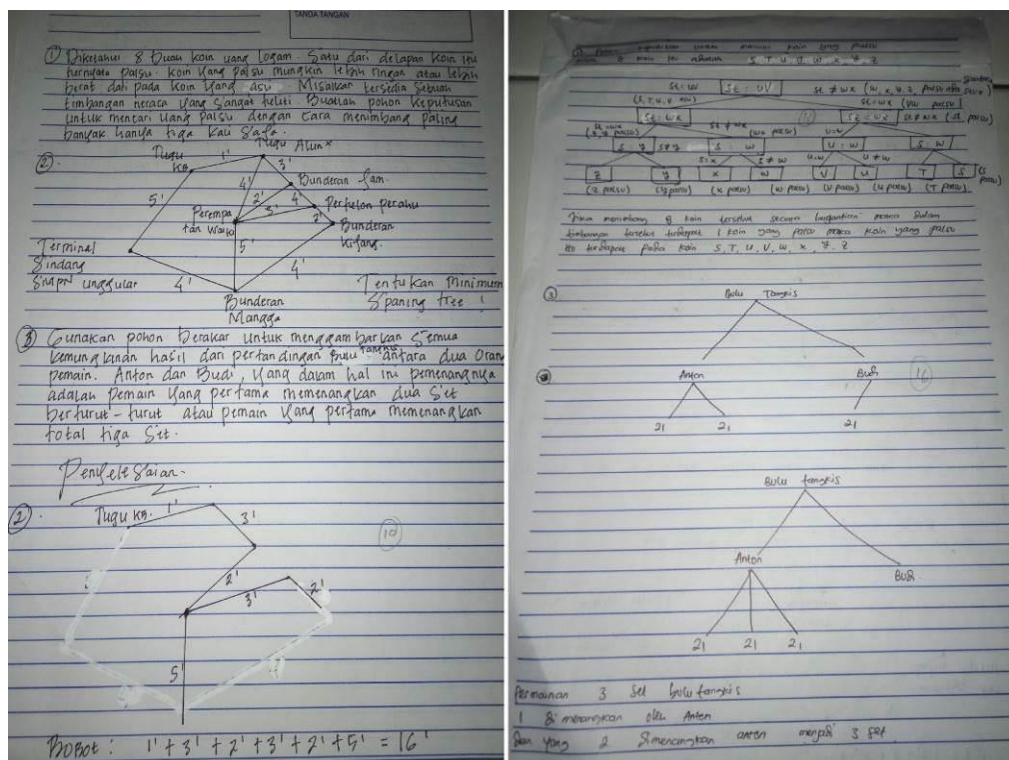 TANDA TANGAN
① Diketahui 8 buah koin uang logam. Satu dari delapan koin itu
ternyata palsu. koin yang palsu mungkin lebih ringan atau lebih
berat dari pada koin yang asli. Misalkan tersedia sebuah
timbangan neraca yang sangat teliti. Buatlah pohon keputusan
untuk mencari uang palsu dengan cara menimbang paling
banyak hanya tiga kali saja.
②.
Tugu KB
1'
Tugu Alun²
3'
4'
Bunderan
5'
2'
4'
3'
Perempa
tan Waiko
Perhelon perahu
2'
Bunderan
Kijang
5'
4'
Terminal
Sindang
SMPN unggular
4'
Bunderan
Mangga
Tentukan Minimum
Spaning tree !
③ Gunakan pohon berakar untuk menggambarkan semua
kemungkinan hasil dari pertandingan Bulu tangkis antara dua orang
pemain. Anton dan Budi, yang dalam hal ini pemenangnya
adalah pemain yang pertama memenangkan dua set
berturut-turut atau pemain yang pertama memenangkan
total tiga set.
Penyelesaian.
②.
Tugu KB.
1'
3'
10
2'
3'
2'
5'
Bobot : 1' + 3' + 2' + 3' + 2' + 5' = 16'
koin yang palsu
S, T, U, V, W, X, Y, Z
St = UV
St = WX
S = W
U = W
S = W
Z
Y
X
W
V
U
T
S
(Z palsu) (Y palsu) (X palsu) (W palsu) (V palsu) (U palsu) (T palsu) (S palsu)
Jika menimbang 8 koin tersebut secara bergantian maka dalam
timbangan tersebut terdapat 1 koin yang palsu maka koin yang palsu
itu terdapat pada koin S, T, U, V, W, X, Y, Z
③
Bulu Tangkis
Anton
Budi
16
21
21
21
Bulu tangkis
Anton
Budi
21
21
21
Permainan 3 set bulu tangkis
1 dimenangkan oleh Anton
dan yang 2 dimenangkan anton menjadi 3 set